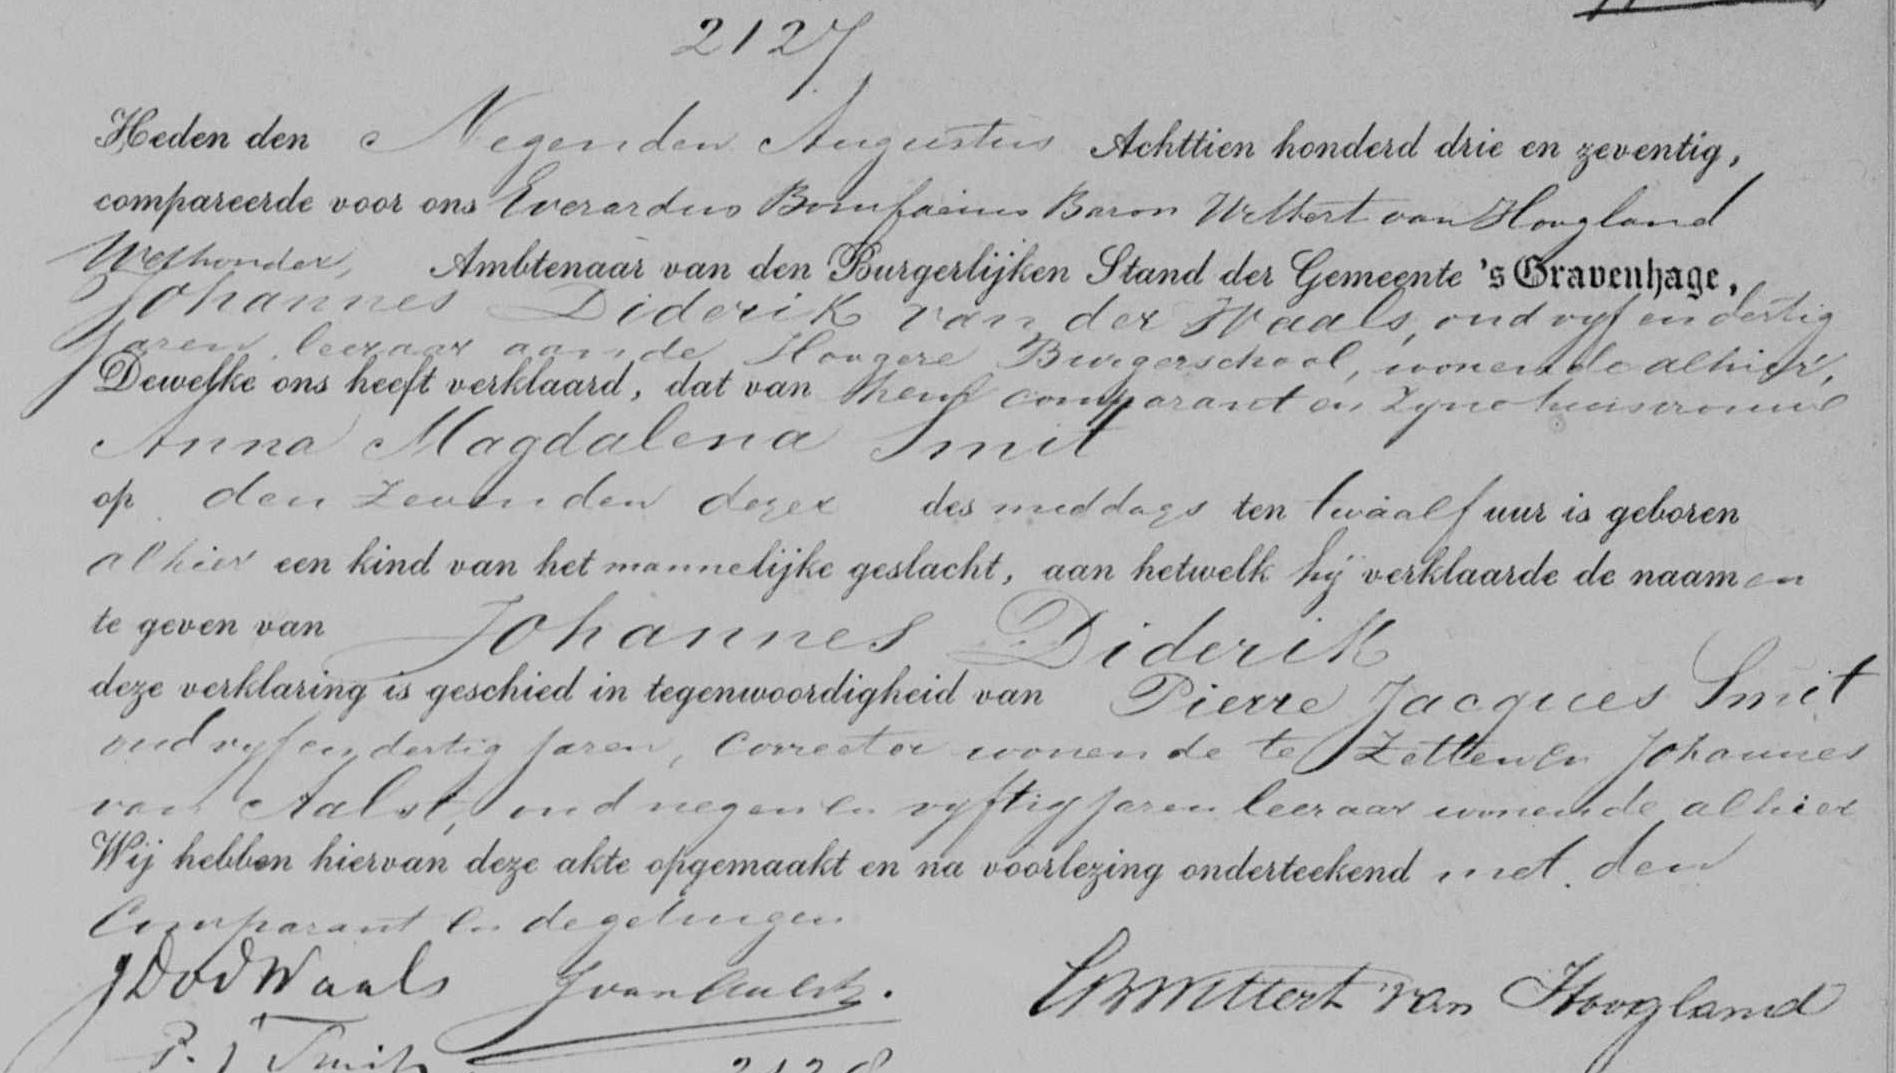 2127
Heden den Negenden Augustus Achttien honderd drie en zeventig,
compareerde voor ons Everardus Bonifacius Baron Wittert van Hoogland
Wethouder, Ambtenaar van den Burgerlijken Stand der Gemeente 's Gravenhage,
Johannes Diderik van der Waals, oud vyf en dertig
jaren, leeraar aan de Hoogere Burgerschool, wonende alhier,
Dewelke ons heeft verklaard, dat van hem comparant en zyne huisvrouwe
Anna Magdalena Smit
op den zevenden dezer des middags ten twaalf uur is geboren
alhier een kind van het mannelijke geslacht, aan hetwelk hij verklaarde de naamen
te geven van Johannes Diderik
deze verklaring is geschied in tegenwoordigheid van Pierre Jacques Smit
oud vyf en dertig jaren, corrector wonende te Zetten en Johannes
van Aalst, oud negen en vyftig jaren leeraar wonende alhier
Wij hebben hiervan deze akte opgemaakt en na voorlezing onderteekend met den
Comparant en de getuigen
JDvdWaals J van Aalst. EBWittert van Hoogland
P. J Smit 2128